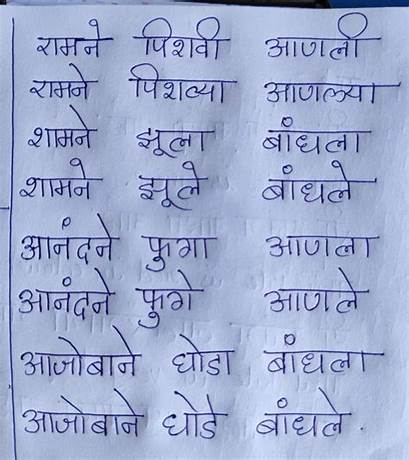 रामने पिशवी आणली
रामने पिशव्या आणल्या
शामने झूला बांधला
शामने झूले बांधले
आनंदने फुगा आणला
आनंदने फुगे आणले
आजोबाने घोडा बांधला
आजोबाने घोडे बांधले.